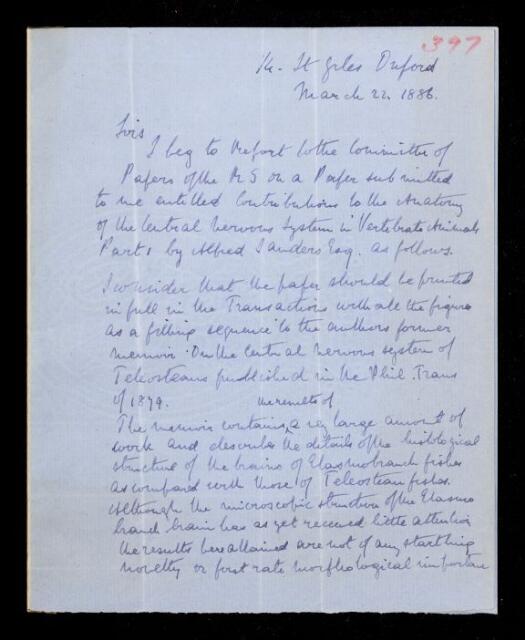 397
14. St Giles Oxford
March 22. 1886.
Sirs
I beg to Report to the Committee of
Papers of the R S on a Paper submitted
to me entitled Contributions to the Anatomy
of the Central Nervous System in Vertebrate Animals
Part 1 by Alfred Sanders Esq. as follows.
I consider that the paper should be printed
in full in the Transactions with all the figures
as a fitting sequence to the authors former
memoir "On the Central nervous system of
Teleosteans published in the Phil. Trans
of 1879.
the results of
The memoir contains a very large amount of
work and describes the details of the histological
structure of the brains of Elasmobranch fishes
as compared with those of Teleostean fishes.
Although the microscopic structure of the Elasmo
branch brain has as yet received little attention
the results here attained are not of any startling
novelty or first rate morphological importance